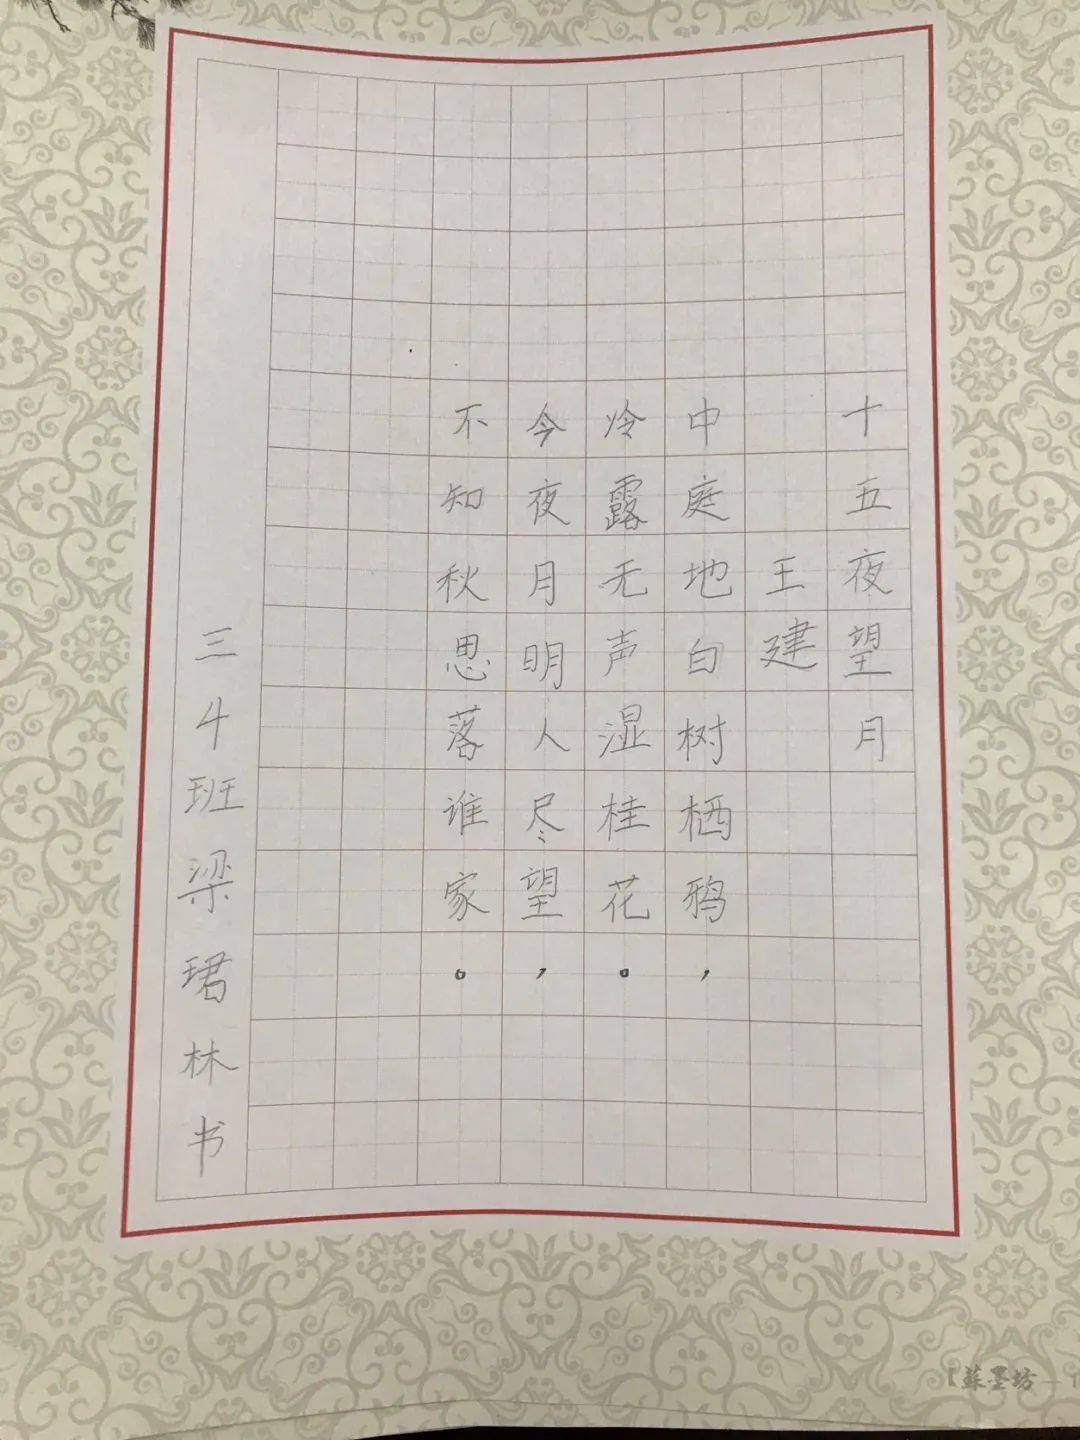 十五夜望月
王建
中庭地白树栖鸦，
冷露无声湿桂花。
今夜月明人尽望，
不知秋思落谁家。
三4班梁珺林书
【蘇墨坊